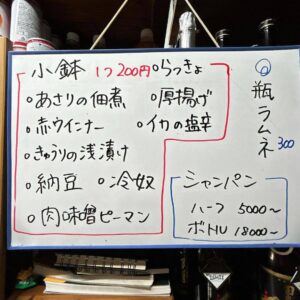 小鉢 1つ200円
・らっきょ
・あさりの佃煮
・厚揚げ
・赤ウインナー
・イカの塩辛
・きゅうりの浅漬け
・納豆
・冷奴
・肉味噌ピーマン
◎瓶ラムネ 300
シャンパン
ハーフ 5000〜
ボトル 18000〜